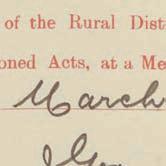 of the Rural Dist
oned Acts, at a Me
March